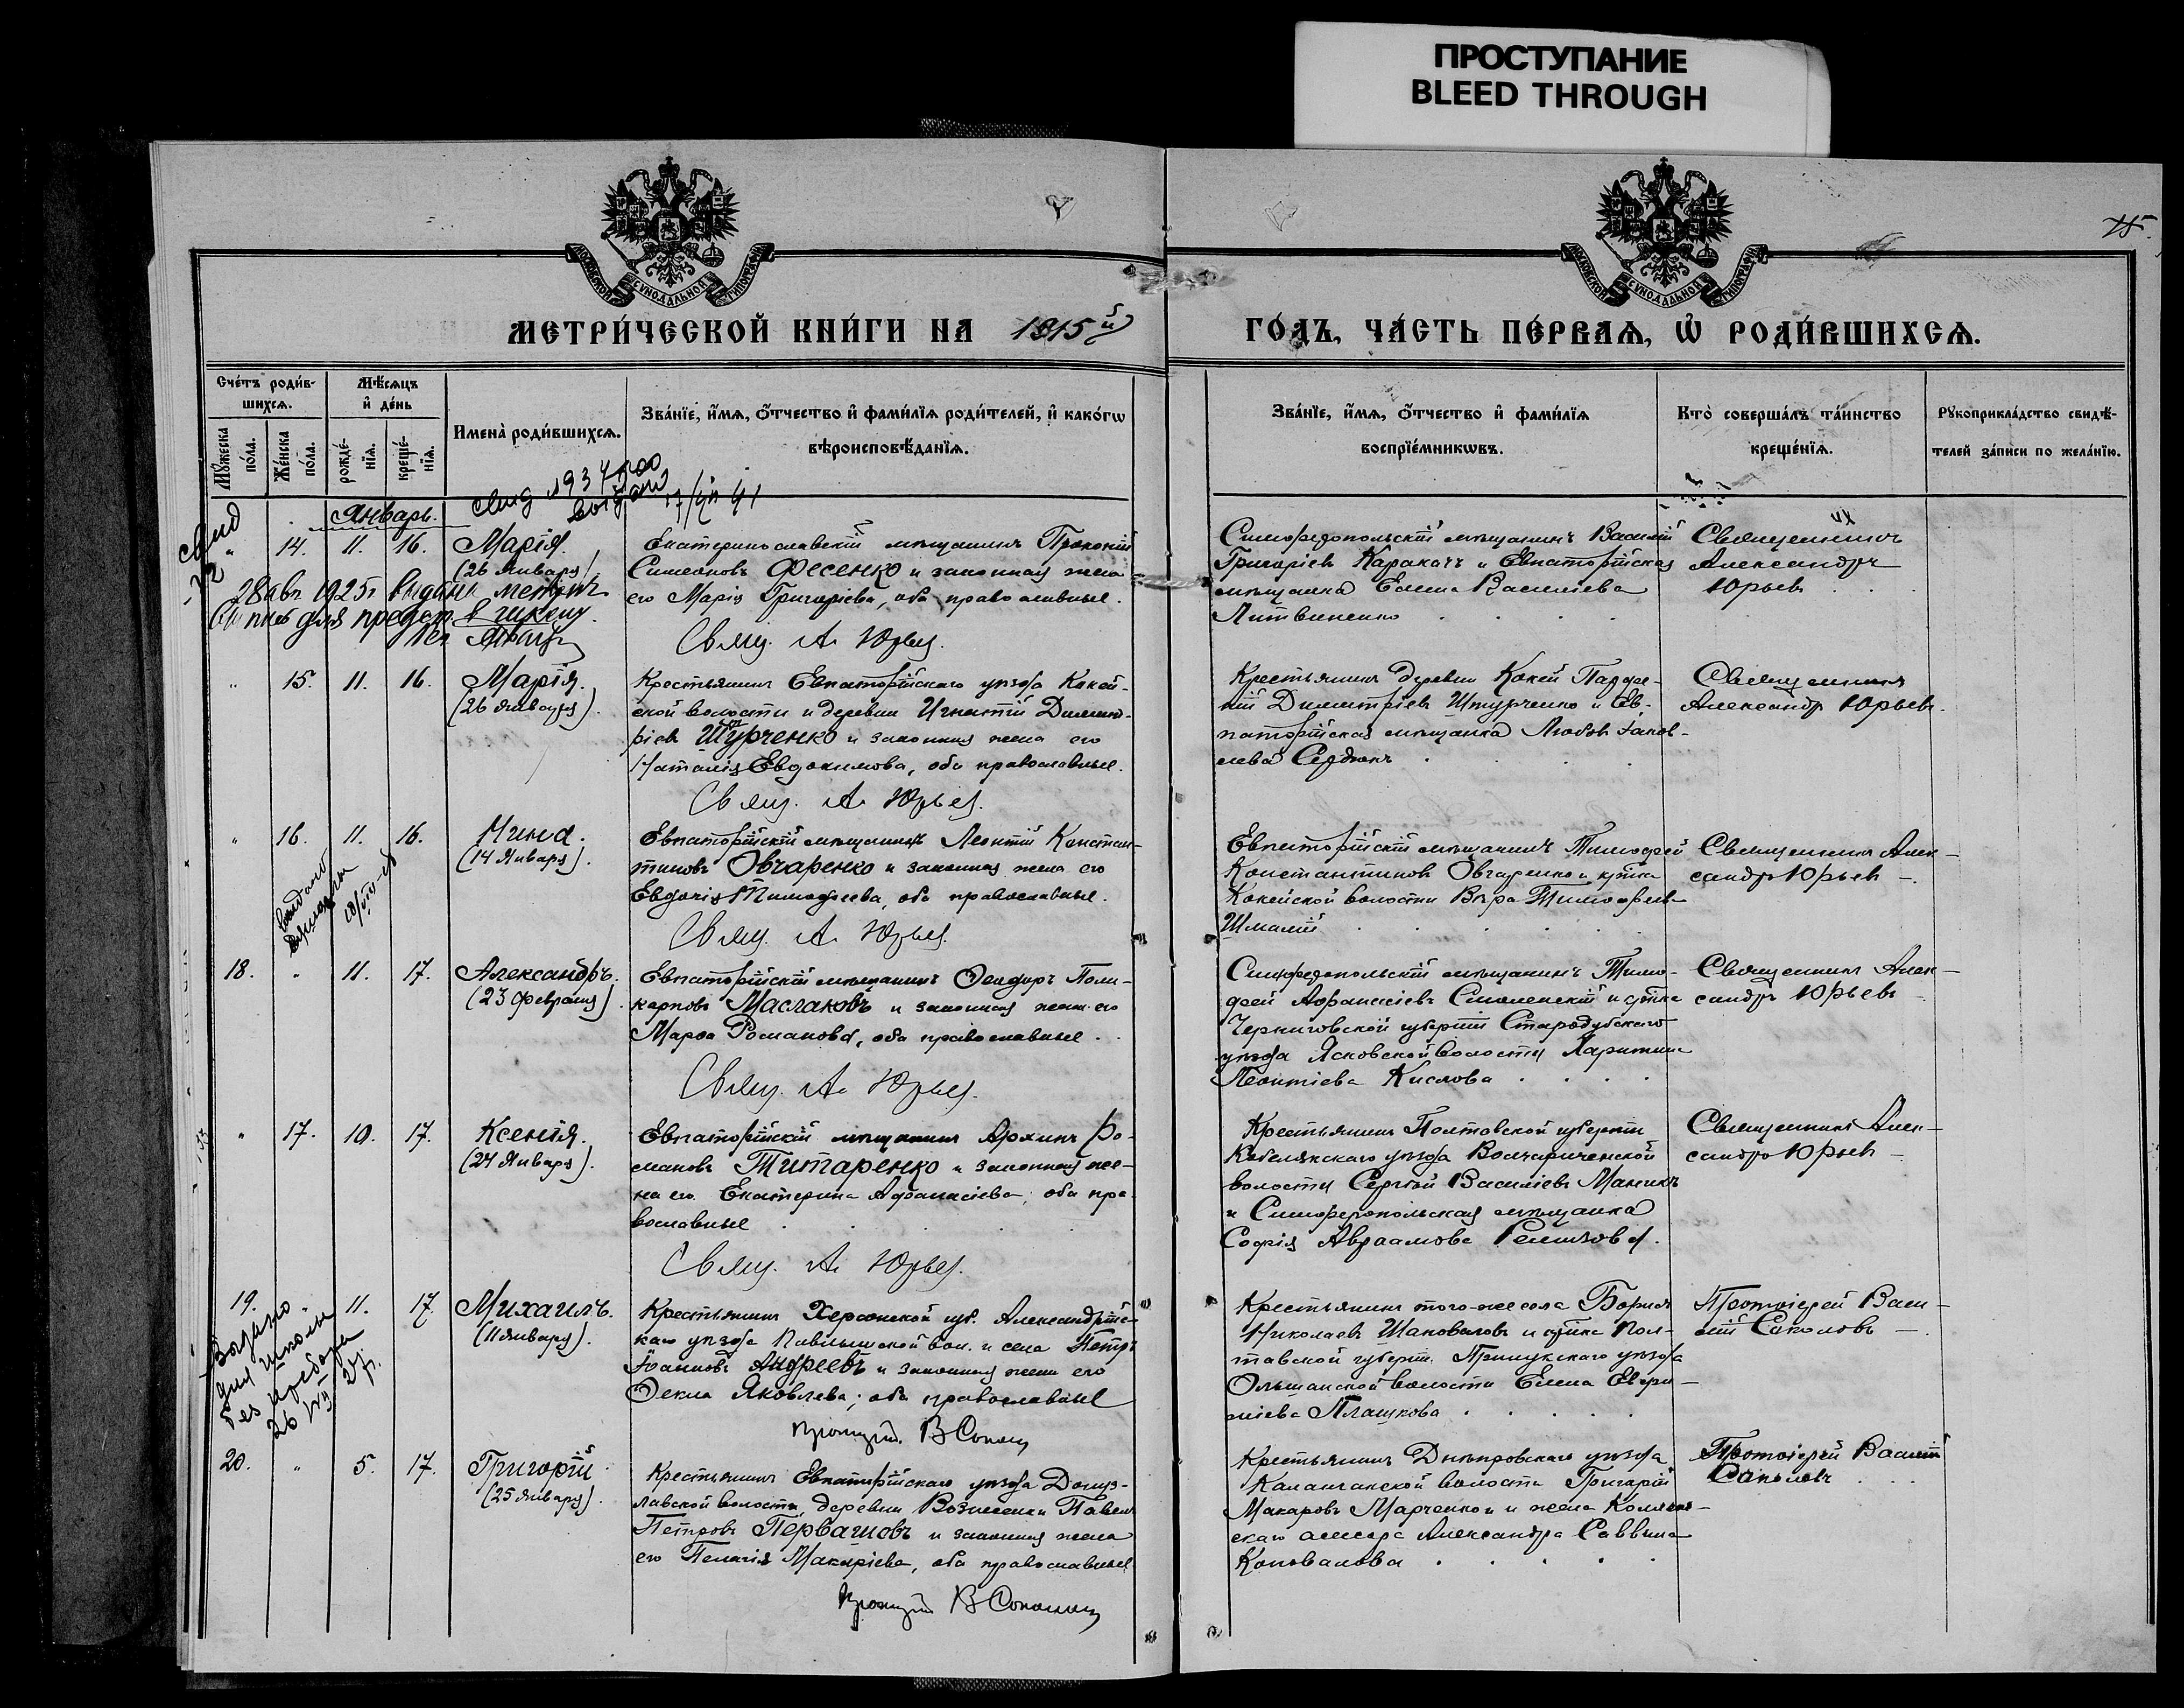 ПРОСТУПАНИЕ
BLEED THROUGH
МОСКОВСКОЙ СѴНОДАЛЬНОЙ ТИПОГРАФІИ
МОСКОВСКОЙ СѴНОДАЛЬНОЙ ТИПОГРАФІИ
МЕТРИ́ЧЕСКОЙ КНИ́ГИ НА 1915й
ГО́ДЪ, ЧА́СТЬ ПЕ́РВАѦ, Ѡ҆ РОДИ́ВШИХСѦ.
Сче́тъ роди́в-
шихсѧ.
Мꙋ́жеска по́ла.
Же́нска по́ла.
Мѣ́сѧцъ
и҆ де́нь
рожде́-
нїѧ.
креще́-
нїѧ.
И҆мена̀ роди́вшихсѧ.
Зва́нїе, и҆́мѧ, ѻ҆́тчество и҆ фами́лїѧ роди́телей, и҆ како́гѡ
вѣроисповѣ́данїѧ.
Зва́нїе, и҆́мѧ, ѻ҆́тчество и҆ фами́лїѧ
воспрїе́мникѡвъ.
Кто̀ соверша́лъ та́инство
креще́нїѧ.
Рꙋкоприкла́дство свидѣ́-
телей за́писи по жела́нїю.
Январь.
" 14. 11. 16. Марія.
(26 Января)
Екатеринославскій мѣщанинъ Прокопій
Симеоновъ Фесенко и законная жена
его Марія Григоріева, оба православные.
Свящ. А. Юрьев.
Симферопольскій мѣщанинъ Василій
Григоріевъ Каракачъ и Евпаторійская
мѣщанка Елена Василіева
Литвиненко
Священникъ
Александръ
Юрьевъ
28 авг 1925г выдана метрич
" 15. 11. 16. Марія.
(26 Января).
Крестьянинъ Евпаторійскаго уѣзда Кокей-
ской волости и деревни Игнатій Димит-
ріевъ Штурченко и законная жена его
Наталія Евдокимова, оба православные.
Свящ. А. Юрьев.
Крестьянинъ деревни Кокей Парфе-
ній Димитріевъ Штурченко и Ев-
паторійская мѣщанка Любовь Іаков-
лева
Священникъ
Александръ Юрьевъ.
" 16. 11. 16. Нина.
(14 Января).
Евпаторійскій мѣщанинъ Леонтій Констан-
тиновъ Овчаренко и законная жена его
Евдокія Тимофеева, оба православные.
Свящ. А. Юрьев.
Евпаторійскій мѣщанинъ Тимофей
Константиновъ Овчаренко и кр-нка
Кокейской волости Вѣра Тимофеева
Шмалій
Священникъ Алек-
сандръ Юрьевъ
18. " 11. 17. Александръ.
(23 Февраля).
Евпаторійскій мѣщанинъ Ѳеодоръ Поли-
карповъ Маслаковъ и законная жена его
Марѳа Романова, оба православные.
Свящ. А. Юрьев.
Симферопольскій мѣщанинъ Тимо-
фей Аѳанасіевъ Смоленскій и кр-нка
Черниговской губерніи Стародубскаго
уѣзда Ясковской волости Харитина
Леонтіева Кислова
Священникъ Алек-
сандръ Юрьевъ
" 17. 10. 17. Ксенія.
(24 Января).
Евпаторійскій мѣщанинъ Архипъ Ро-
мановъ Титаренко и законная же-
на его Екатерина Аѳанасіева, оба пра-
вославные
Свящ. А. Юрьев.
Крестьянинъ Полтавской губерніи
Кобелякскаго уѣзда
волости Сергѣй Василіевъ
и Симферопольская мѣщанка
Софія Авраамова
Священникъ Алек-
сандръ Юрьевъ
19. " 11. 17. Михаилъ.
(11 Января).
Крестьянинъ Херсонской губ. Александрійс-
каго уѣзда Павлышской вол. и села Петръ
Іоанновъ Андреевъ и законная жена его
Ѳекла Яковлева, оба православные
Протоіер. В Соколов
Крестьянинъ того-же села Борисъ
Николаевъ Шаповаловъ и кр-нка Пол-
тавской губерніи Прилукскаго уѣзда
Ольшанской волости Елена
Плашкова
Протоіерей Васи-
лій Соколовъ
20. " 5. 17. Григорій
(25 Января).
Крестьянинъ Евпаторійскаго уѣзда Донуз-
лавской волости деревни Вознесенки Павелъ
Петровъ Первашовъ и законная жена
его Пелагія Макаріева, оба православные
Протоіер. В Соколов
Крестьянинъ Днѣпровскаго уѣзда
Каланчакской волости Григорій
Макаровъ Марченко и жена Коллеж-
скаго асесора Александра Саввина
Коновалова
Протоіерей Василій
Соколовъ